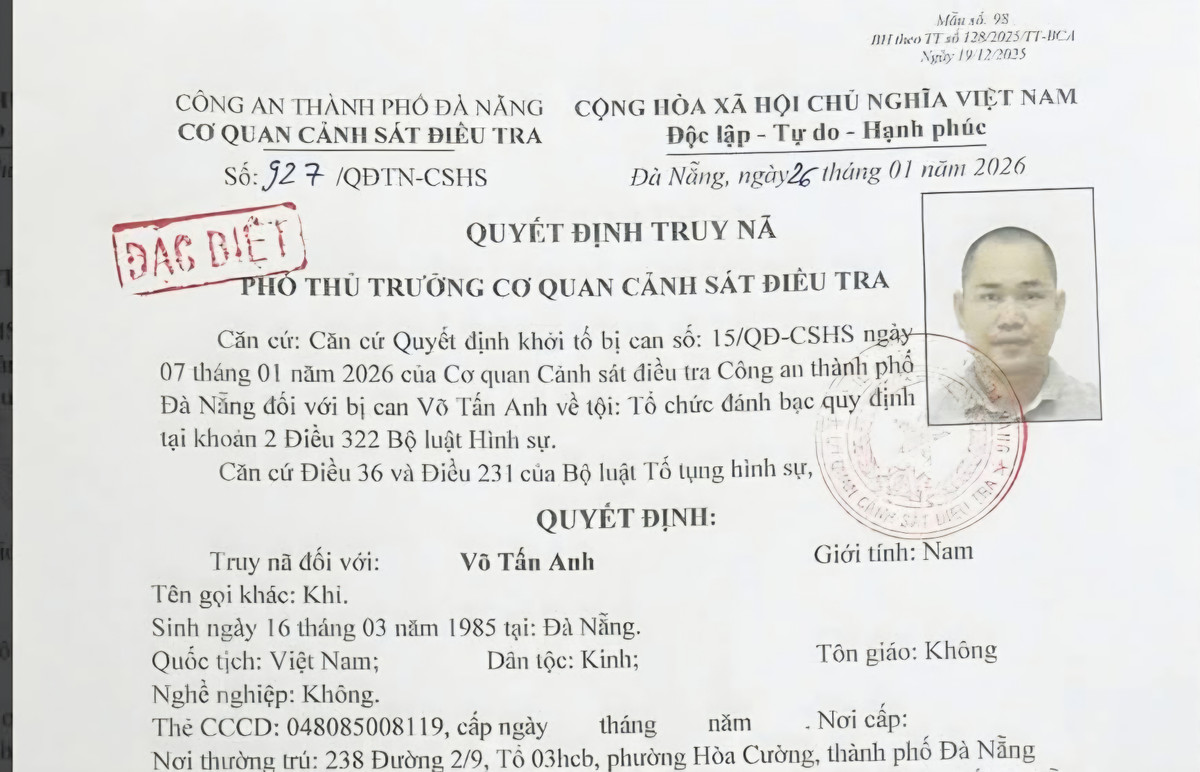 Mẫu số. 98
BH theo TT số 128/2025/TT-BCA
Ngày 19/12/2025
CÔNG AN THÀNH PHỐ ĐÀ NẴNG
CƠ QUAN CẢNH SÁT ĐIỀU TRA
Số: 927 /QĐTN-CSHS
CỘNG HÒA XÃ HỘI CHỦ NGHĨA VIỆT NAM
Độc lập - Tự do - Hạnh phúc
Đà Nẵng, ngày 26 tháng 01 năm 2026
ĐẶC BIỆT
QUYẾT ĐỊNH TRUY NÃ
PHÓ THỦ TRƯỞNG CƠ QUAN CẢNH SÁT ĐIỀU TRA
Căn cứ: Căn cứ Quyết định khởi tố bị can số: 15/QĐ-CSHS ngày
07 tháng 01 năm 2026 của Cơ quan Cảnh sát điều tra Công an thành phố
Đà Nẵng đối với bị can Võ Tấn Anh về tội: Tổ chức đánh bạc quy định
tại khoản 2 Điều 322 Bộ luật Hình sự.
Căn cứ Điều 36 và Điều 231 của Bộ luật Tố tụng hình sự,
CƠ QUAN CẢNH SÁT ĐIỀU TRA
QUYẾT ĐỊNH:
Truy nã đối với: Võ Tấn Anh Giới tính: Nam
Tên gọi khác: Khỉ.
Sinh ngày 16 tháng 03 năm 1985 tại: Đà Nẵng.
Quốc tịch: Việt Nam; Dân tộc: Kinh; Tôn giáo: Không
Nghề nghiệp: Không.
Thẻ CCCD: 048085008119, cấp ngày tháng năm . Nơi cấp:
Nơi thường trú: 238 Đường 2/9, Tổ 03hcb, phường Hòa Cường, thành phố Đà Nẵng